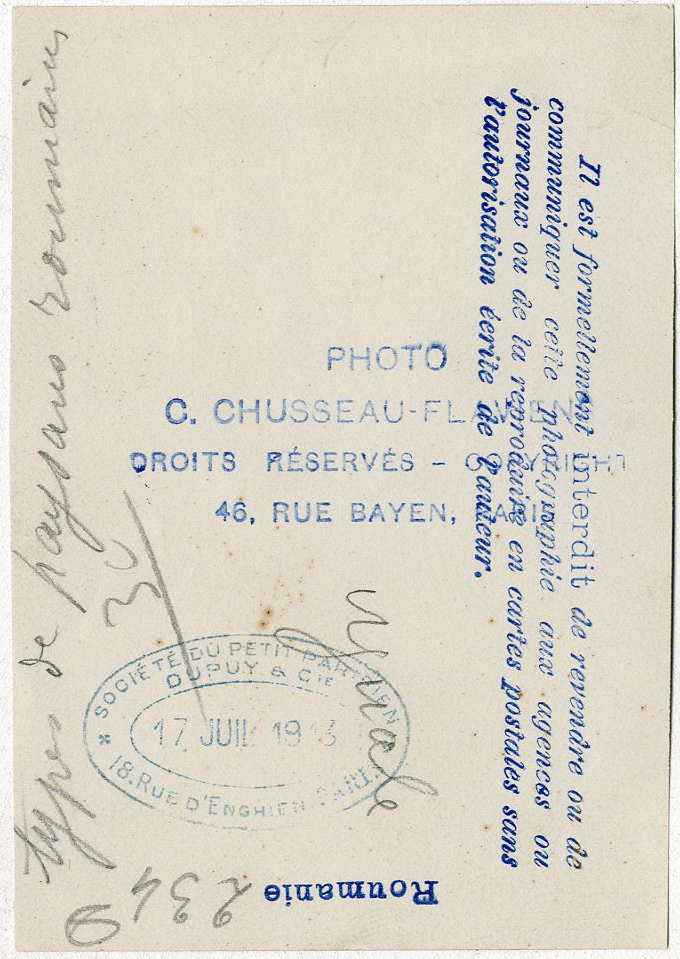 types de paysans roumains
PHOTO
C. CHUSSEAU-FLAVIENS
DROITS RÉSERVÉS - COPYRIGHT
46, RUE BAYEN, PARIS
Il est formellement interdit de revendre ou de
communiquer cette photographie aux agences ou
journaux ou de la reproduire en cartes postales sans
l'autorisation écrite de l'auteur.
30
SOCIÉTÉ DU PETIT PARISIEN
DUPUY & CIE
17 JUIL 1913
18. RUE D'ENGHIEN. PARIS
Roumanie
234